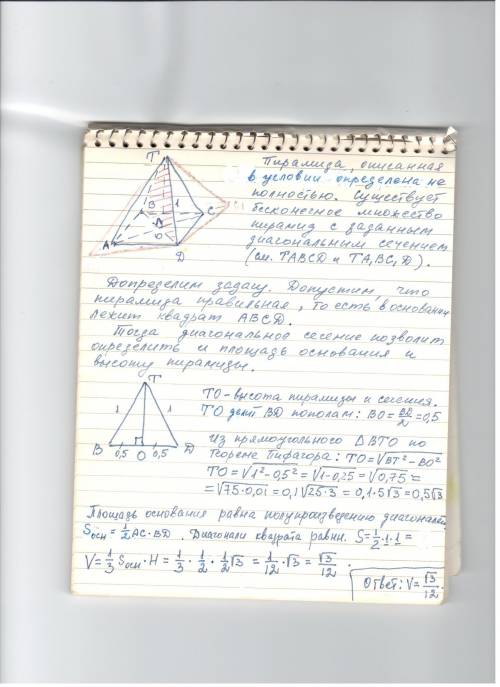 T
Пирамида, описанная
в условии определена не
полностью. Существует
бесконечное множество
пирамид с заданным
диагональным сечением
(см. TABCD и TA₁BC₁D).
B 1 C
A O
D
Доопределим задачу. Допустим, что
пирамида правильная, то есть в основании
лежит квадрат ABCD.
Тогда диагональное сечение позволит
определить и площадь основания и
высоту пирамиды.
T
1 1
B 0,5 O 0,5 D
TO - высота пирамиды и сечения.
TO делит BD пополам: BO = BD/2 = 0,5
Из прямоугольного ΔBTO по
теореме Пифагора: TO = √BT² - BO²
TO = √1² - 0,5² = √1 - 0,25 = √0,75 =
= √75·0,01 = 0,1√25·3 = 0,1·5√3 = 0,5√3
Площадь основания равна полупроизведению диагоналей
Sосн = 1/2 AC·BD. Диагонали квадрата равны. S = 1/2·1·1 =
V = 1/3 Sосн·H = 1/3 · 1/2 · 1/2√3 = 1/12·√3 = √3/12.
Ответ: V = √3/12.